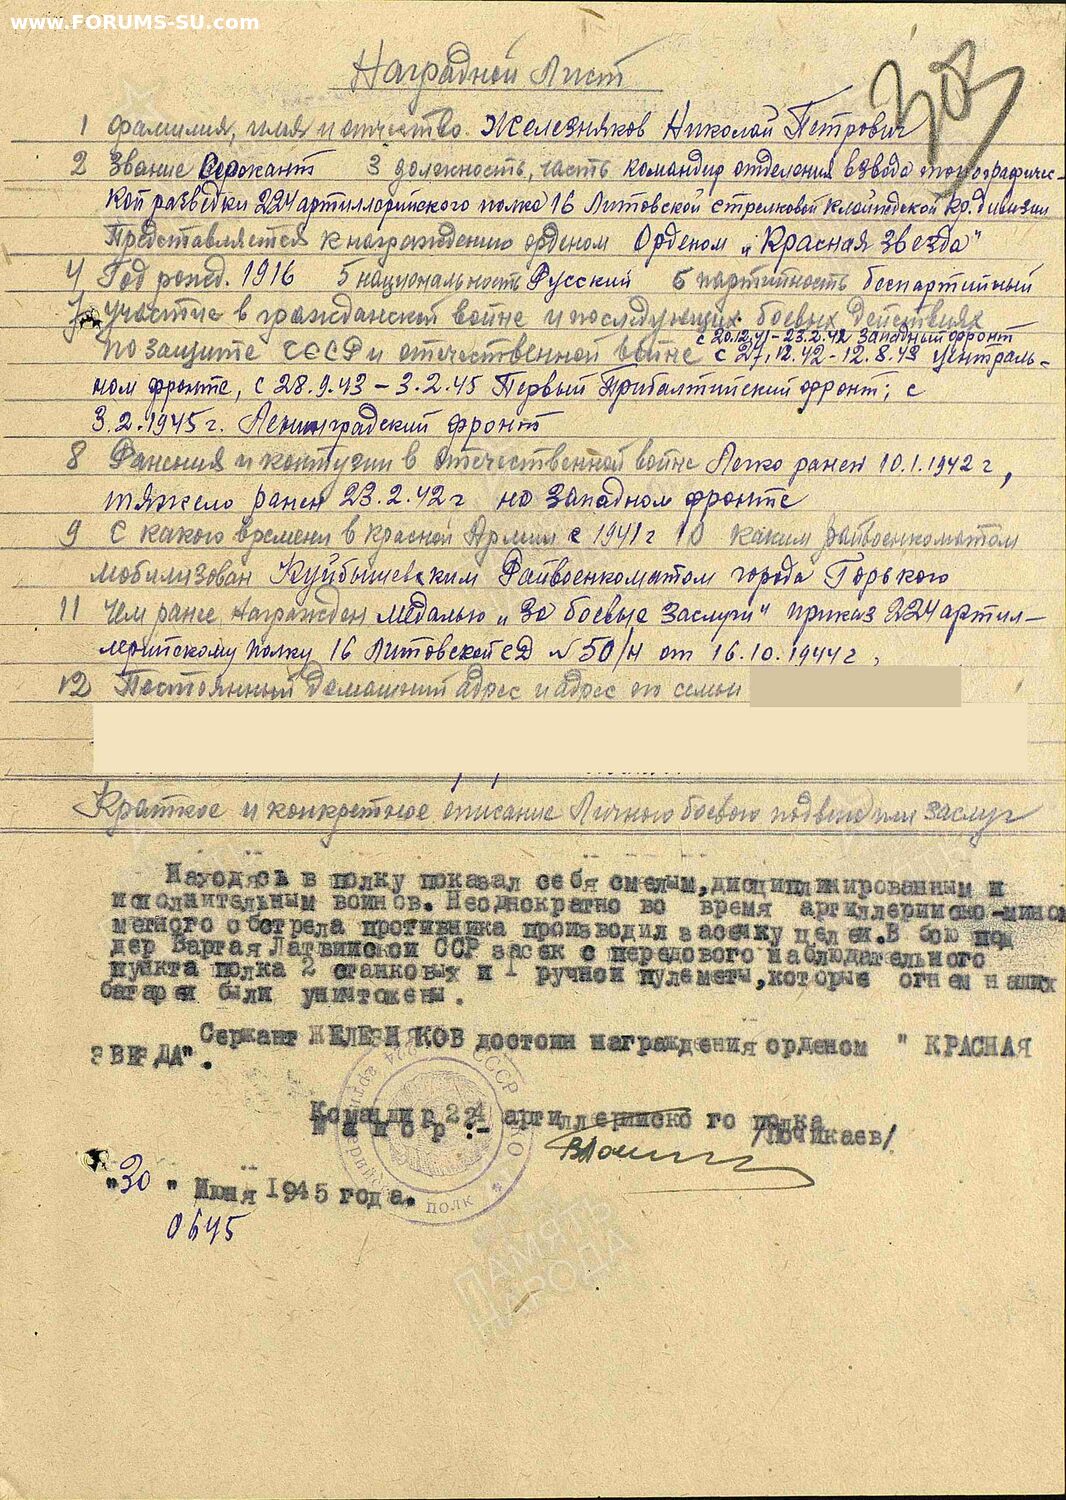 www.FORUMS-SU.com
Наградной Лист
1 Фамилия, имя и отчество. Железняков Николай Петрович
2 Звание Сержант 3 должность, часть командир отделения взвода топографичес-
кой разведки 224 артиллерийского полка 16 Литовской стрелковой Клайпедской кр. дивизии
Представляется к награждению орденом Орденом „Красная звезда"
4 Год рожд. 1916 5 национальность Русский 6 партийность беспартийный
7 Участие в гражданской войне и последующих боевых действиях
с 20.12.41 - 23.2.42 Западный фронт
по защите СССР и отечественной войне с 27.12.42 - 12.8.43 централь-
ном фронте, с 28.9.43 - 3.2.45 Первый Прибалтийский фронт; с
3.2.1945 г. Ленинградский фронт
8 Ранения и контузии в отечественной войне Легко ранен 10.1.1942 г,
тяжело ранен 23.2.42 г на западном фронте
9 С какого времени в красной Армии с 1941 г 10 каким райвоенкоматом
мобилизован Куйбышевским Райвоенкоматом города Горького
11 Чем ранее награжден медалью „За боевые заслуги" приказ 224 артил-
лерийскому полку 16 Литовской сд № 50/н от 16.10.1944 г,
12 Постоянный домашний адрес и адрес его семьи
Краткое и конкретное описание Личного боевого подвига или заслуг
Находясь в полку показал себя смелым, дисциплинированным и
исполнительным воином. Неоднократно во время артиллерийско-мино
метного обстрела противника производил засечку целей. В бою под
дер Варгая Латвийской ССР засек с передового наблюдательного
пункта полка 2 станковых и 1 ручной пулеметы, которые огнем наших
батарей были уничтожены.
Сержант ЖЕЛЕЗНЯКОВ достоин награждения орденом " КРАСНАЯ
ЗВЕЗДА".
Командир 224 артиллерийского полка
Майор :-
"30" Июня 1945 года.
0645
СССР
полк
ПАМЯТЬ
НАРОДА